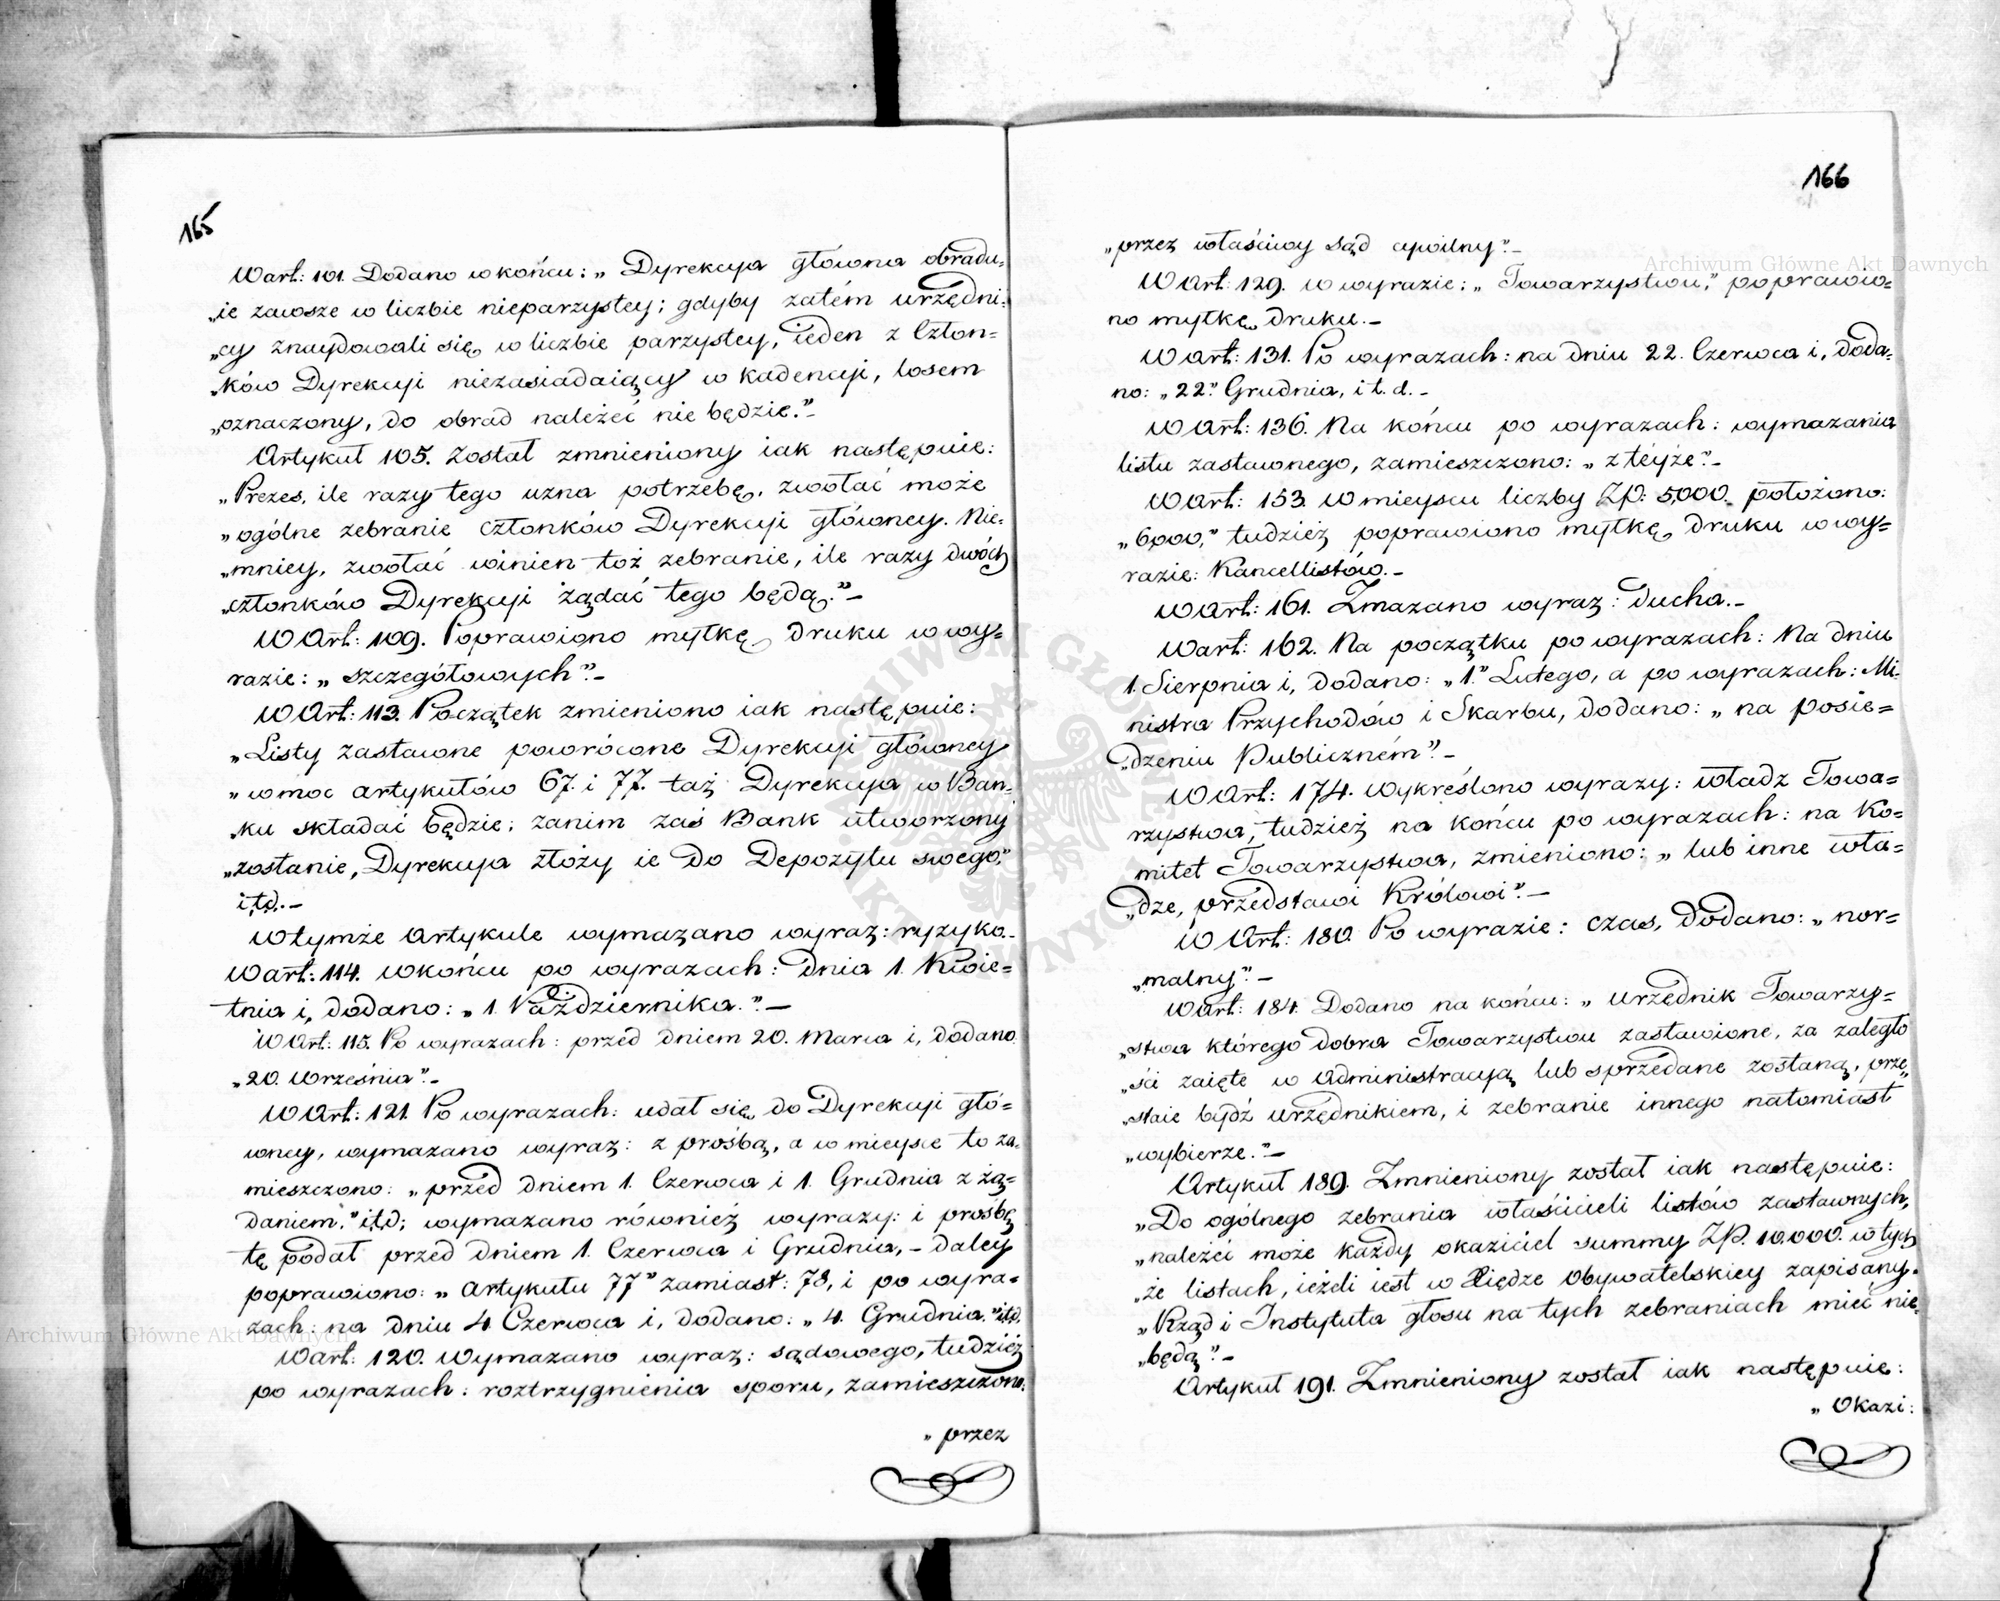 165
W art: 101. Dodano w końcu: „Dyrekcya główna obradu„
„ie zawsze w liczbie nieparzystey; gdyby zatém urzędni„
„cy znaydowali się w liczbie parzystey, ieden z Człon=
„ków Dyrekcyi niezasiadaiący w kadencyi, losem
„oznaczony, do obrad należeć nie będzie.”_
Artykuł 105. Został zmnieniony iak następuie:
„Prezes, ile razy tego uzna potrzebę, zwołać może
„ogólne zebranie członków Dyrekcyi główney. Nie„
„mniey, zwołać winien toż zebranie, ile razy dwóch
„członków Dyrekcyi żądać tego będą.”_
W Art: 109. Poprawiono myłkę druku w wy=
razie: „szczegółowych”._
W Art: 113. Początek zmieniono iak następuie:
„Listy zastawne powrócone Dyrekcyi główney
„w moc artykułów 67. i 77. taż Dyrekcya w Ban„
„ku składać będzie; zanim zaś Bank utworzony
„zostanie, Dyrekcya złoży ie do Depozytu swego,”
i t.d._
W tymże artykule wymazano wyraz: ryzyko._
W art: 114. w końcu po wyrazach: dnia 1. Kwie=
tnia i, dodano: „1. Października.”_
W Art: 115. Po wyrazach: przed dniem 20. Marca i, dodano
„20. Września”._
W Art: 121. Po wyrazach: udał się do Dyrekcyi głó=
wney, wymazano wyraz: z prośbą, a w mieysce to za„
mieszczono: „przed dniem 1. Czerwca i 1. Grudnia z żą=
daniem,” itd; wymazano również wyrazy: i prośbę
tę podał przed dniem 1. Czerwca i Grudnia,_ daley
poprawiono: „artykułu 77” zamiast: 78, i po wyra=
zach: na dniu 4. Czerwca i, dodano: „4. Grudnia.” itd.
W art: 120. Wymazano wyraz: sądowego, tudzież
po wyrazach: roztrzygnienia sporu, zamieszczono:
„przez
166
„przez właściwy sąd cywilny”._
W Art: 129. w wyrazie: „Towarzystwu,” poprawio=
no myłkę druku._
W art: 131. Po wyrazach: na dniu 22. Czerwca i, doda=
no: „22.” Grudnia, i t. d._
W Art: 136. Na końcu po wyrazach: wymazania
listu zastawnego, zamieszczono: „z téyże”._
W art: 153. W mieyscu liczby Zp: 5,000. położono:
„6,000,” tudzież poprawiono myłkę druku w wy=
razie: Kancellistów._
W art: 161. Zmazano wyraz: ducha._
W art: 162. Na początku po wyrazach: Na dniu
1. Sierpnia i, dodano: „1.” Lutego, a po wyrazach: Mi„
nistra Przychodów i Skarbu, dodano: „na posie=
„dzeniu Publiczném”._
W Art: 174. Wykreślono wyrazy: władz Towa=
rzystwa, tudzież na końcu po wyrazach: na Ko=
mitet Towarzystwa, zmieniono: „lub inne wła=
„dze, przedstawi Królowi”._
W Art: 180. Po wyrazie: czas, dodano: „nor=
„malny”._
W art: 184. Dodano na końcu: „Urzędnik Towarzy=
„stwa którego dobra Towarzystwu zastawione, za zaległo
„ści zaięte w Administracyą lub sprzedane zostaną, prze„
„staie bydź urzędnikiem, i zebranie innego natomiast
„wybierze.”_
Artykuł 189. Zmnieniony został iak następuie:
„Do ogólnego zebrania właścicieli listów zastawnych,
„należeć może każdy okaziciel summy Zp. 10.000. w tych
„że listach, ieżeli iest w Xiędze Obywatelskiey zapisany.
„Rząd i Instytuta głosu na tych zebraniach mieć nie
„będą”._
Artykuł 191. Zmnieniony został iak następuie:
„Okazi:
Archiwum Główne Akt Dawnych
Archiwum Główne Akt Dawnych
ARCHIWUM GŁÓWNE AKT DAWNYCH